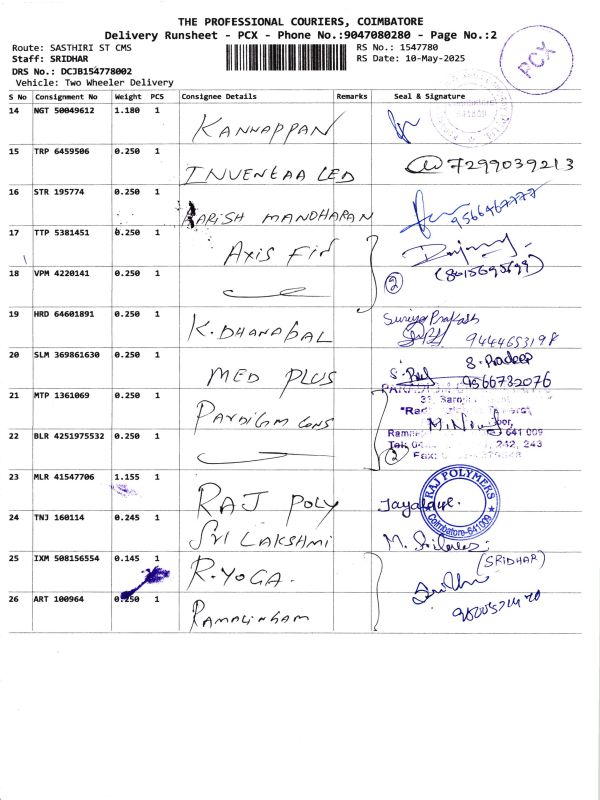 THE PROFESSIONAL COURIERS, COIMBATORE
Delivery Runsheet - PCX - Phone No.:9047080280 - Page No.:2
Route: SASTHIRI ST CMS
RS No.: 1547780
Staff: SRIDHAR
RS Date: 10-May-2025
DRS No.: DCJB154778002
Vehicle: Two Wheeler Delivery
PCX
S No Consignment No Weight PCS Consignee Details Remarks Seal & Signature
14 NGT 50049612 1.180 1 KANNAPPAN
15 TRP 6459506 0.250 1 INVENTAA LED 7299039213
16 STR 195774 0.250 1 HARISH MANOHARAN 9566467777
17 TTP 5381451 0.250 1 AXIS FIN
18 VPM 4220141 0.250 1 2 (8015695699)
19 HRD 64601891 0.250 1 K.DHANABAL Suriya Prakash 9444653198
20 SLM 369861630 0.250 1 MED PLUS S. Pradeep 9566732076
21 MTP 1361069 0.250 1 PARDIGM CONS
22 BLR 4251975532 0.250 1 2 641 009
242, 243
Fax:
23 MLR 41547706 1.155 1 RAJ POLY RAJ POLYMERS Coimbatore-641009
24 TNJ 160114 0.245 1 SRI LAKSHMI
25 IXM 508156554 0.145 1 R.YOGA. (SRIDHAR)
26 ART 100964 0.250 1 RAMALINGAM